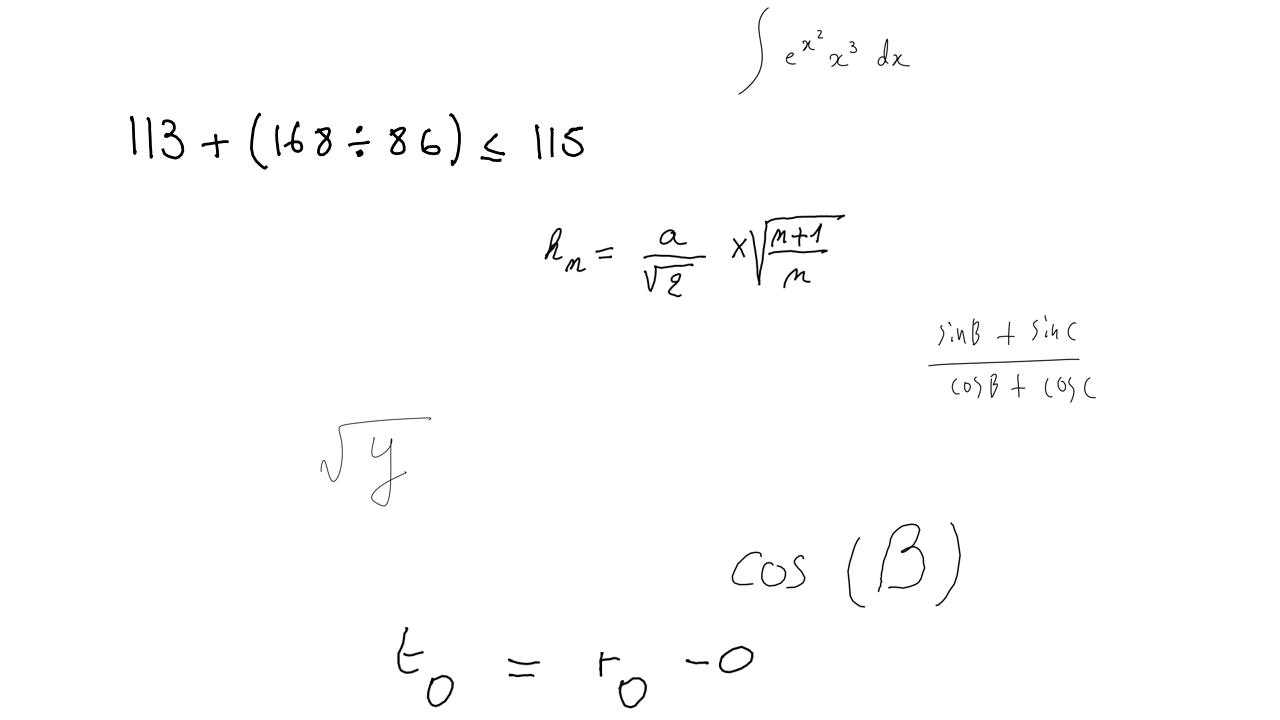 ∫ e^{x^2} x^3 dx
113 + (168 ÷ 86) ≤ 115
h_n = \frac{a}{\sqrt{2}} × \sqrt{\frac{n+1}{n}}
\frac{sin B + sin C}{cos B + cos C}
\sqrt{y}
cos (β)
t_0 = r_0 - 0